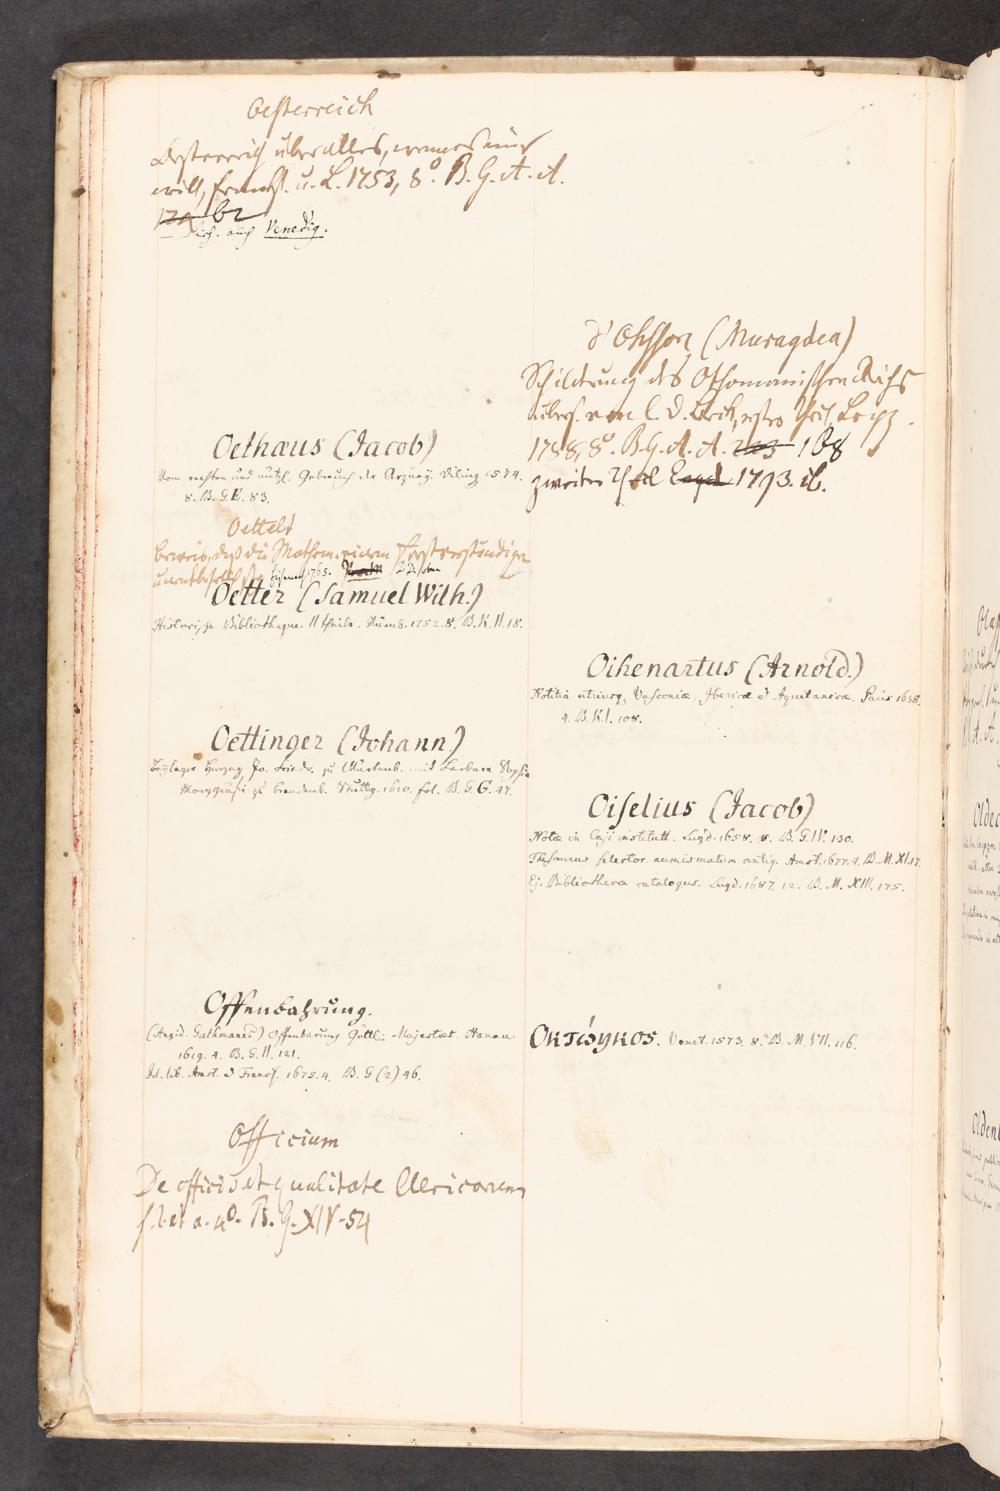 Oesterreich
Oesterreich über alles, wenn es nur
will, Franckf. u. L. 1753, 8º. B. G. A. A.
129 62
Sieh. auch Venedig.
Oethaus (Jacob)
Vom rechten und nützl. Gebrauch der Arzney. Diling 1574.
8. B. G. II. 83.
Oettels
Beweis, daß die Mathem. einem Forstverständigen
unentbehrlich sey Eisenach 1765.
Oetter (Samuel Wilh.)
Historische Bibliotheque. II theile. Nürnb. 1752. 8. B. K. II. 18.
Oettinger (Johann)
Beylager Herzog Jo. Friedr. zu Würtenb. mit Barbara Sophia
Marggräfin zu Brandenb. Stuttg. 1610. fol. B. G. G. 47.
Offenbahrung.
(Aegid. Guthmanns) Offenbarung Göttli. Majestæt. Hanau.
1619. 4. B. G. II. 121.
Id. lib. Amst. & Francf. 1675. 4. B. G (2) 46.
Officium
De officio et qualitate Clericorum
s. l. et a. 4º. B. G. XIV. 54
d'Ohsson (Muragdea)
Schilderung des Othomanischen Reichs
übers. von C. D. Beck, erster Theil, Leipz.
1788, 8º. B. G. A. A. 223 168
zweiter Theil 1793. ib.
Oihenartus (Arnold.)
Notitia utriusq. Vasconiæ, Ibericæ & Aquitanicæ. Paris 1638.
4. B. K. I. 108.
Oiselius (Jacob)
Notæ in Caji institutt. Lugd. 1658. 8. B. G. IV. 130.
Thesaurus selector. numismatum antiq. Amst. 1677. 4. B. M. XI. 17.
Ej. Bibliotheca catalogus. Lugd. 1687. 12. B. M. XIII. 175.
Οκτώηχος. Venet. 1573. 8. B. M. VII. 116.